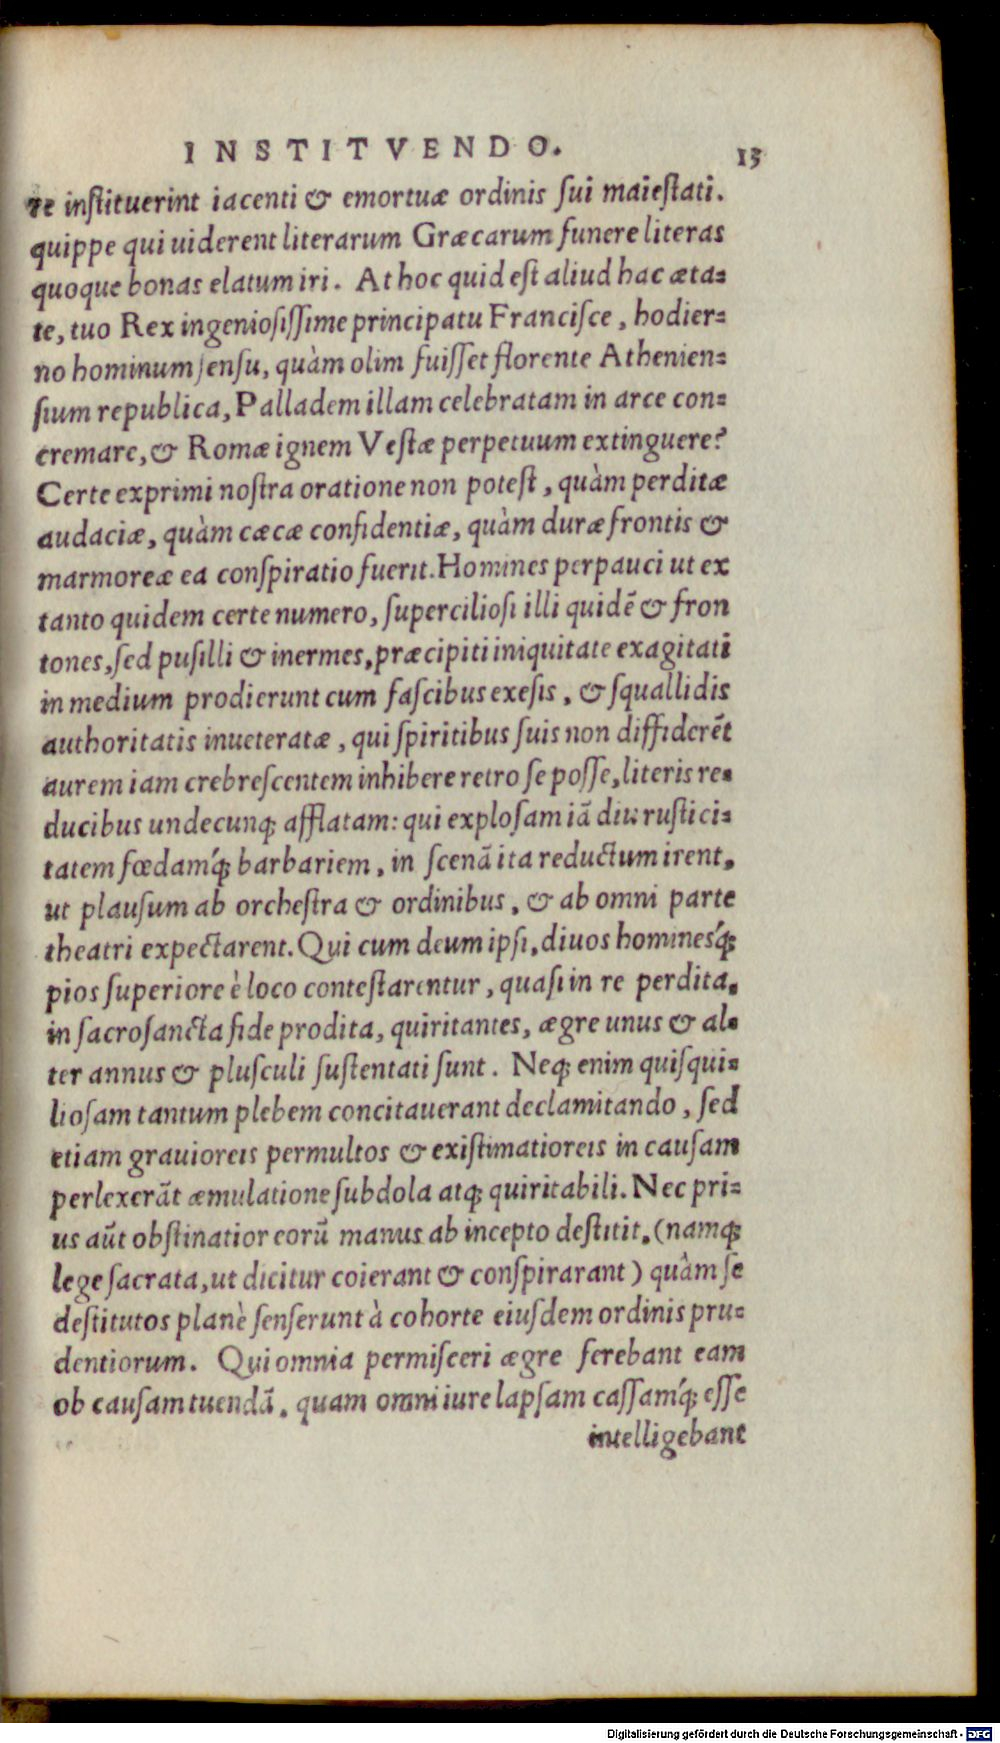 INSTITVENDO. 13
re inſtituerint iacenti & emortuæ ordinis ſui maieſtati.
quippe qui uiderent literarum Græcarum funere literas
quoque bonas elatum iri. At hoc quid eſt aliud hac æta=
te, tuo Rex ingenioſiſſime principatu Franciſce, hodier=
no hominum ſenſu, quàm olim fuiſſet florente Athenien=
ſium republica, Palladem illam celebratam in arce con=
cremare, & Romæ ignem Veſtæ perpetuum extinguere?
Certe exprimi noſtra oratione non poteſt, quàm perditæ
audaciæ, quàm cæcæ confidentiæ, quàm duræ frontis &
marmoreæ ea conſpiratio fuerit. Homines perpauci ut ex
tanto quidem certe numero, ſupercilioſi illi quidē & fron
tones, ſed puſilli & inermes, præcipiti iniquitate exagitati
in medium prodierunt cum faſcibus exeſis, & ſquallidis
authoritatis inueteratæ, qui ſpiritibus ſuis non diffiderēt
aurem iam crebreſcentem inhibere retro ſe poſſe, literis re=
ducibus undecunq; afflatam: qui exploſam iā diu ruſtici=
tatem fœdamq́; barbariem, in ſcenā ita reductum irent,
ut plauſum ab orcheſtra & ordinibus, & ab omni parte
theatri expectarent. Qui cum deum ipſi, diuos hominesq́;
pios ſuperiore è loco conteſtarentur, quaſi in re perdita,
in ſacroſancta fide prodita, quiritantes, ægre unus & al=
ter annus & pluſculi ſuſtentati ſunt. Neq; enim quiſqui=
lioſam tantum plebem concitauerant declamitando, ſed
etiam grauioreis permultos & exiſtimatioreis in cauſam
perlexerāt æmulatione ſubdola atq; quiritabili. Nec pri=
us aūt obſtinatior eorū manus ab incepto deſtitit, (namq;
lege ſacrata, ut dicitur coierant & conſpirarant) quàm ſe
deſtitutos planè ſenſerunt à cohorte eiuſdem ordinis pru=
dentiorum. Qui omnia permiſceri ægre ferebant eam
ob cauſam tuendā, quam omni iure lapſam caſſamq́; eſſe
intelligebant
Digitalisierung gefördert durch die Deutsche Forschungsgemeinschaft - DFG